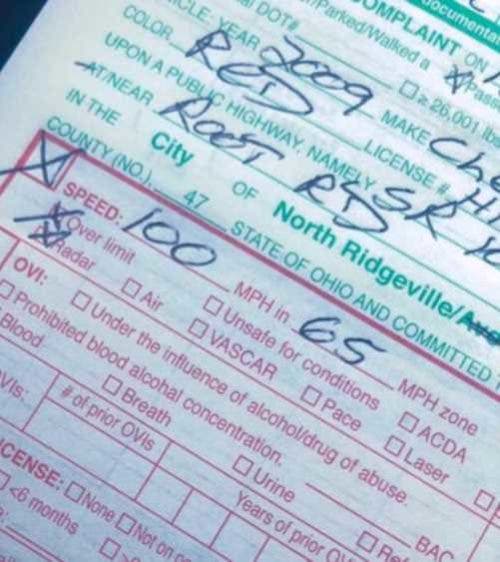 documenta
COMPLAINT ON
/Parked/Walked a Pass
DOT#
□ ≥ 26,001 lb
VEHICLE: YEAR 2009 MAKE Che
COLOR RED LICENSE #
UPON A PUBLIC HIGHWAY, NAMELY SR 10
AT/NEAR ROOT RD
IN THE City OF North Ridgeville/
COUNTY (NO.) 47 STATE OF OHIO AND COMMITTED
SPEED: 100 MPH in 65 MPH zone
Over limit □ Unsafe for conditions □ ACDA
Radar □ Air □ VASCAR □ Pace □ Laser
OVI: □ Under the influence of alcohol/drug of abuse.
□ Prohibited blood alcohal concentration. BAC
Blood □ Breath □ Urine □ Ref
OVIs: # of prior OVIs Years of prior OV
ICENSE: □ None □ Not on
<6 months